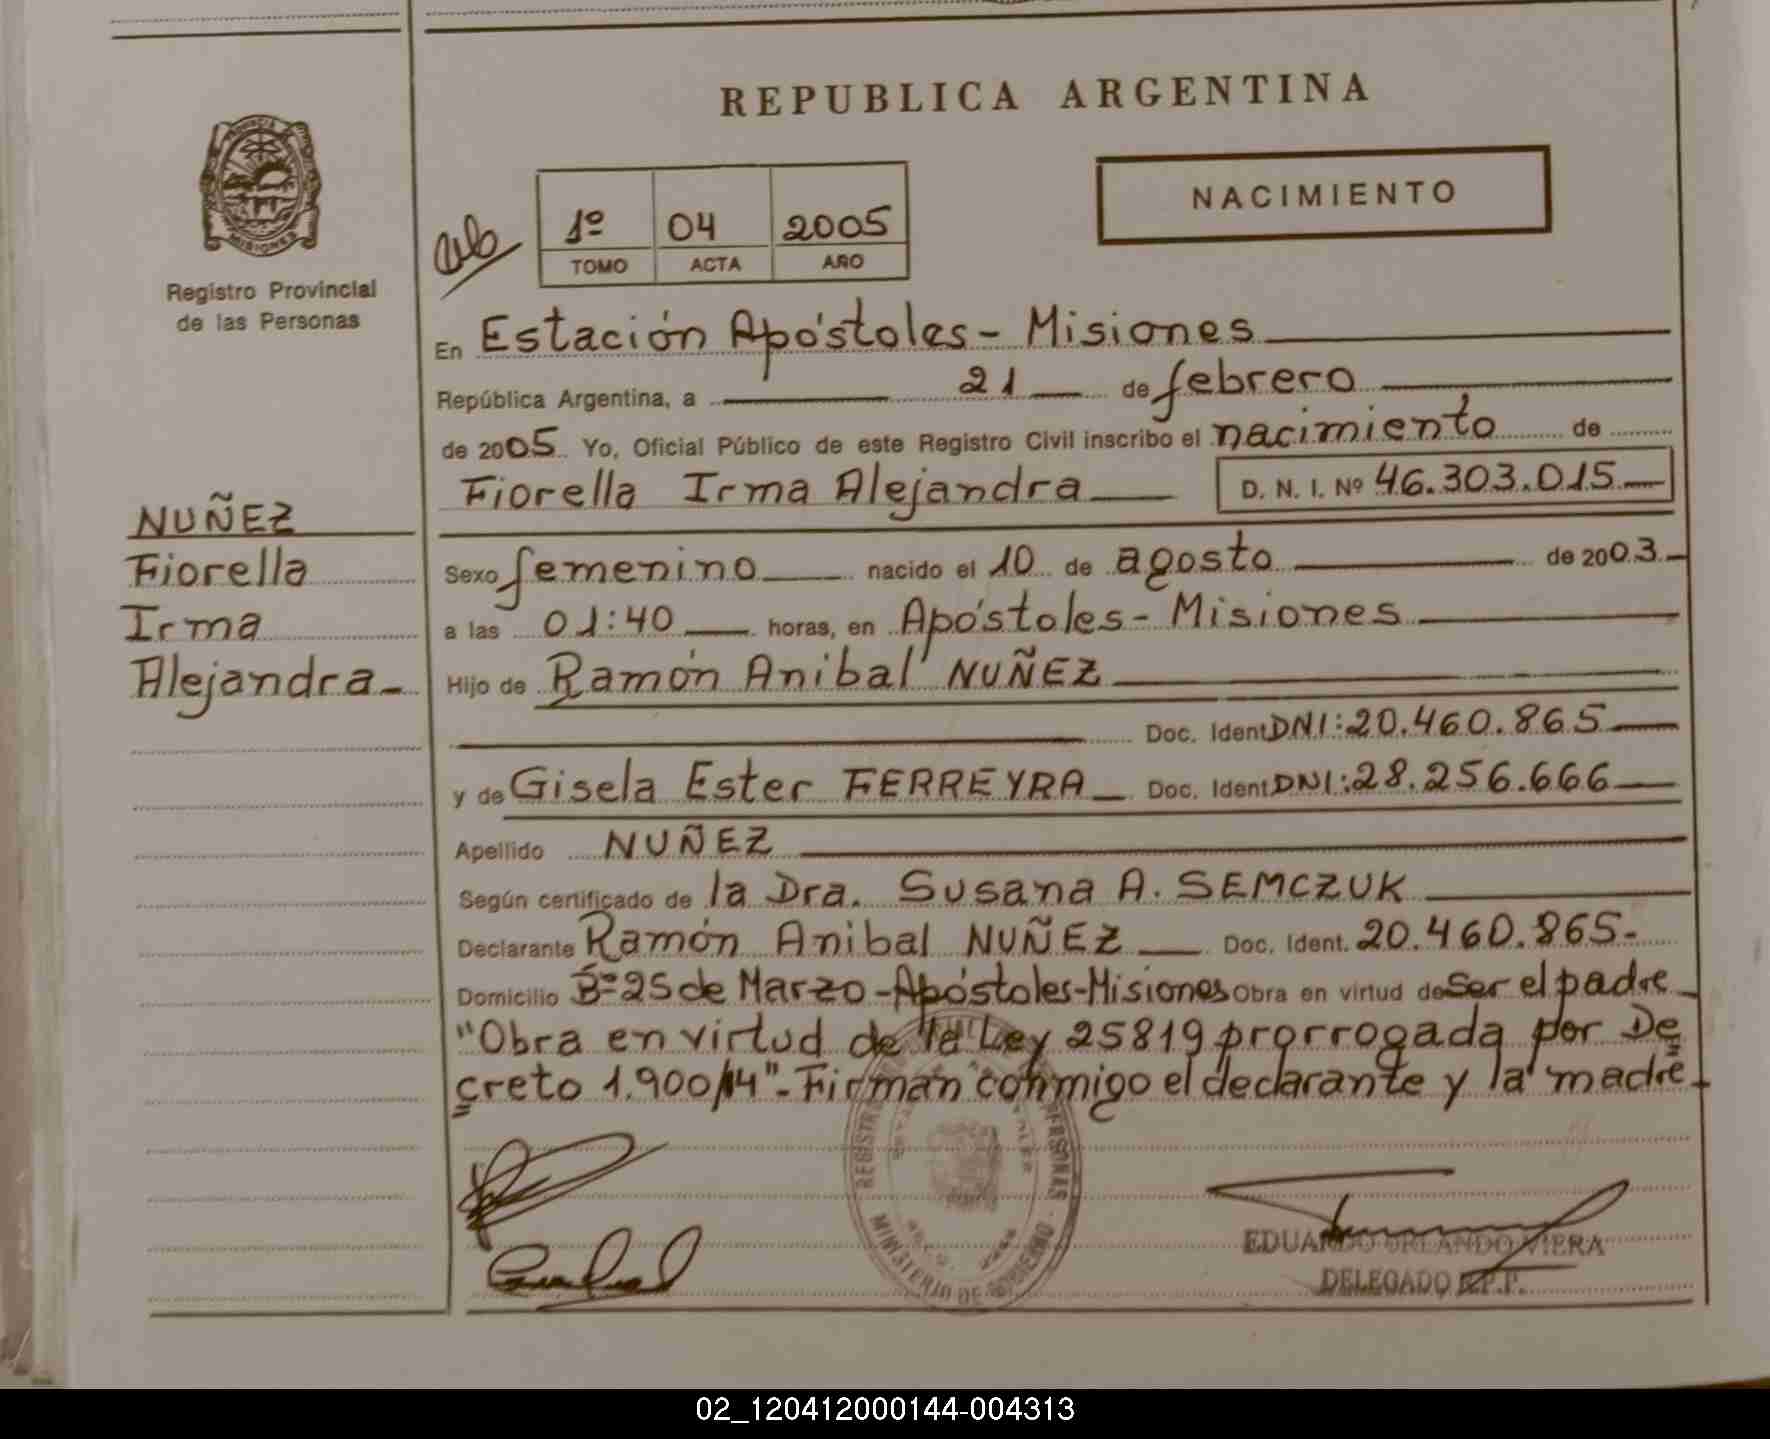 REPUBLICA ARGENTINA
NACIMIENTO
1º 04 2005
TOMO ACTA AÑO
PROVINCIA DE MISIONES
Registro Provincial
de las Personas
En Estación Apóstoles - Misiones
República Argentina, a 21 de febrero
de 2005 Yo, Oficial Público de este Registro Civil inscribo el nacimiento de
Fiorella Irma Alejandra D. N. I. Nº 46.303.015
NUÑEZ
Fiorella
Irma
Alejandra
Sexo femenino nacido el 10 de agosto de 2003
a las 01:40 horas, en Apóstoles - Misiones
Hijo de Ramón Anibal NUÑEZ
Doc. Ident DNI: 20.460.865
y de Gisela Ester FERREYRA Doc. Ident DNI: 28.256.666
Apellido NUÑEZ
Según certificado de la Dra. Susana A. SEMCZUK
Declarante Ramón Anibal NUÑEZ Doc. Ident. 20.460.865-
Domicilio Bº 25 de Marzo - Apóstoles - Misiones Obra en virtud de ser el padre
"Obra en virtud de la Ley 25819 prorrogada por De
creto 1.900/14" - Firman conmigo el declarante y la madre
MINISTERIO DE GOBIERNO
EDUARDO ORLANDO VIERA
DELEGADO R.P.P.
02_120412000144-004313